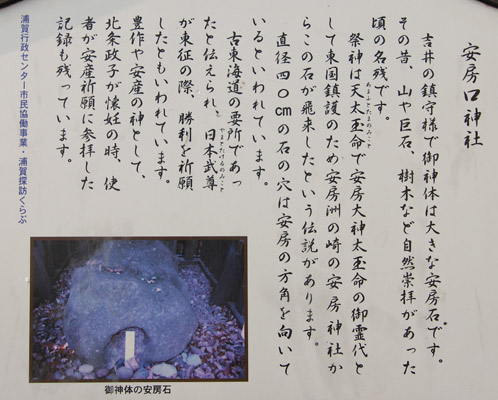 安房口神社
吉井の鎮守様で御神体は大きな安房石です。
その昔、山や巨石、樹木など自然崇拝があった
頃の名残です。
あまのふとだまのみこと
祭神は天太玉命で安房大神太玉命の御霊代と
して東国鎮護のため安房洲の崎の安房神社か
らこの石が飛来したという伝説があります。
直径四〇cmの石の穴は安房の方角を向いて
いるといわれています。
古東海道の要所であっ
たと伝えられ、日本武尊
やまとたけるのみこと
が東征の際、勝利を祈願
したともいわれています。
豊作や安産の神として、
北条政子が懐妊の時、使
者が安産祈願に参拝した
記録も残っています。
浦賀行政センター市民協働事業・浦賀探訪くらぶ
御神体の安房石